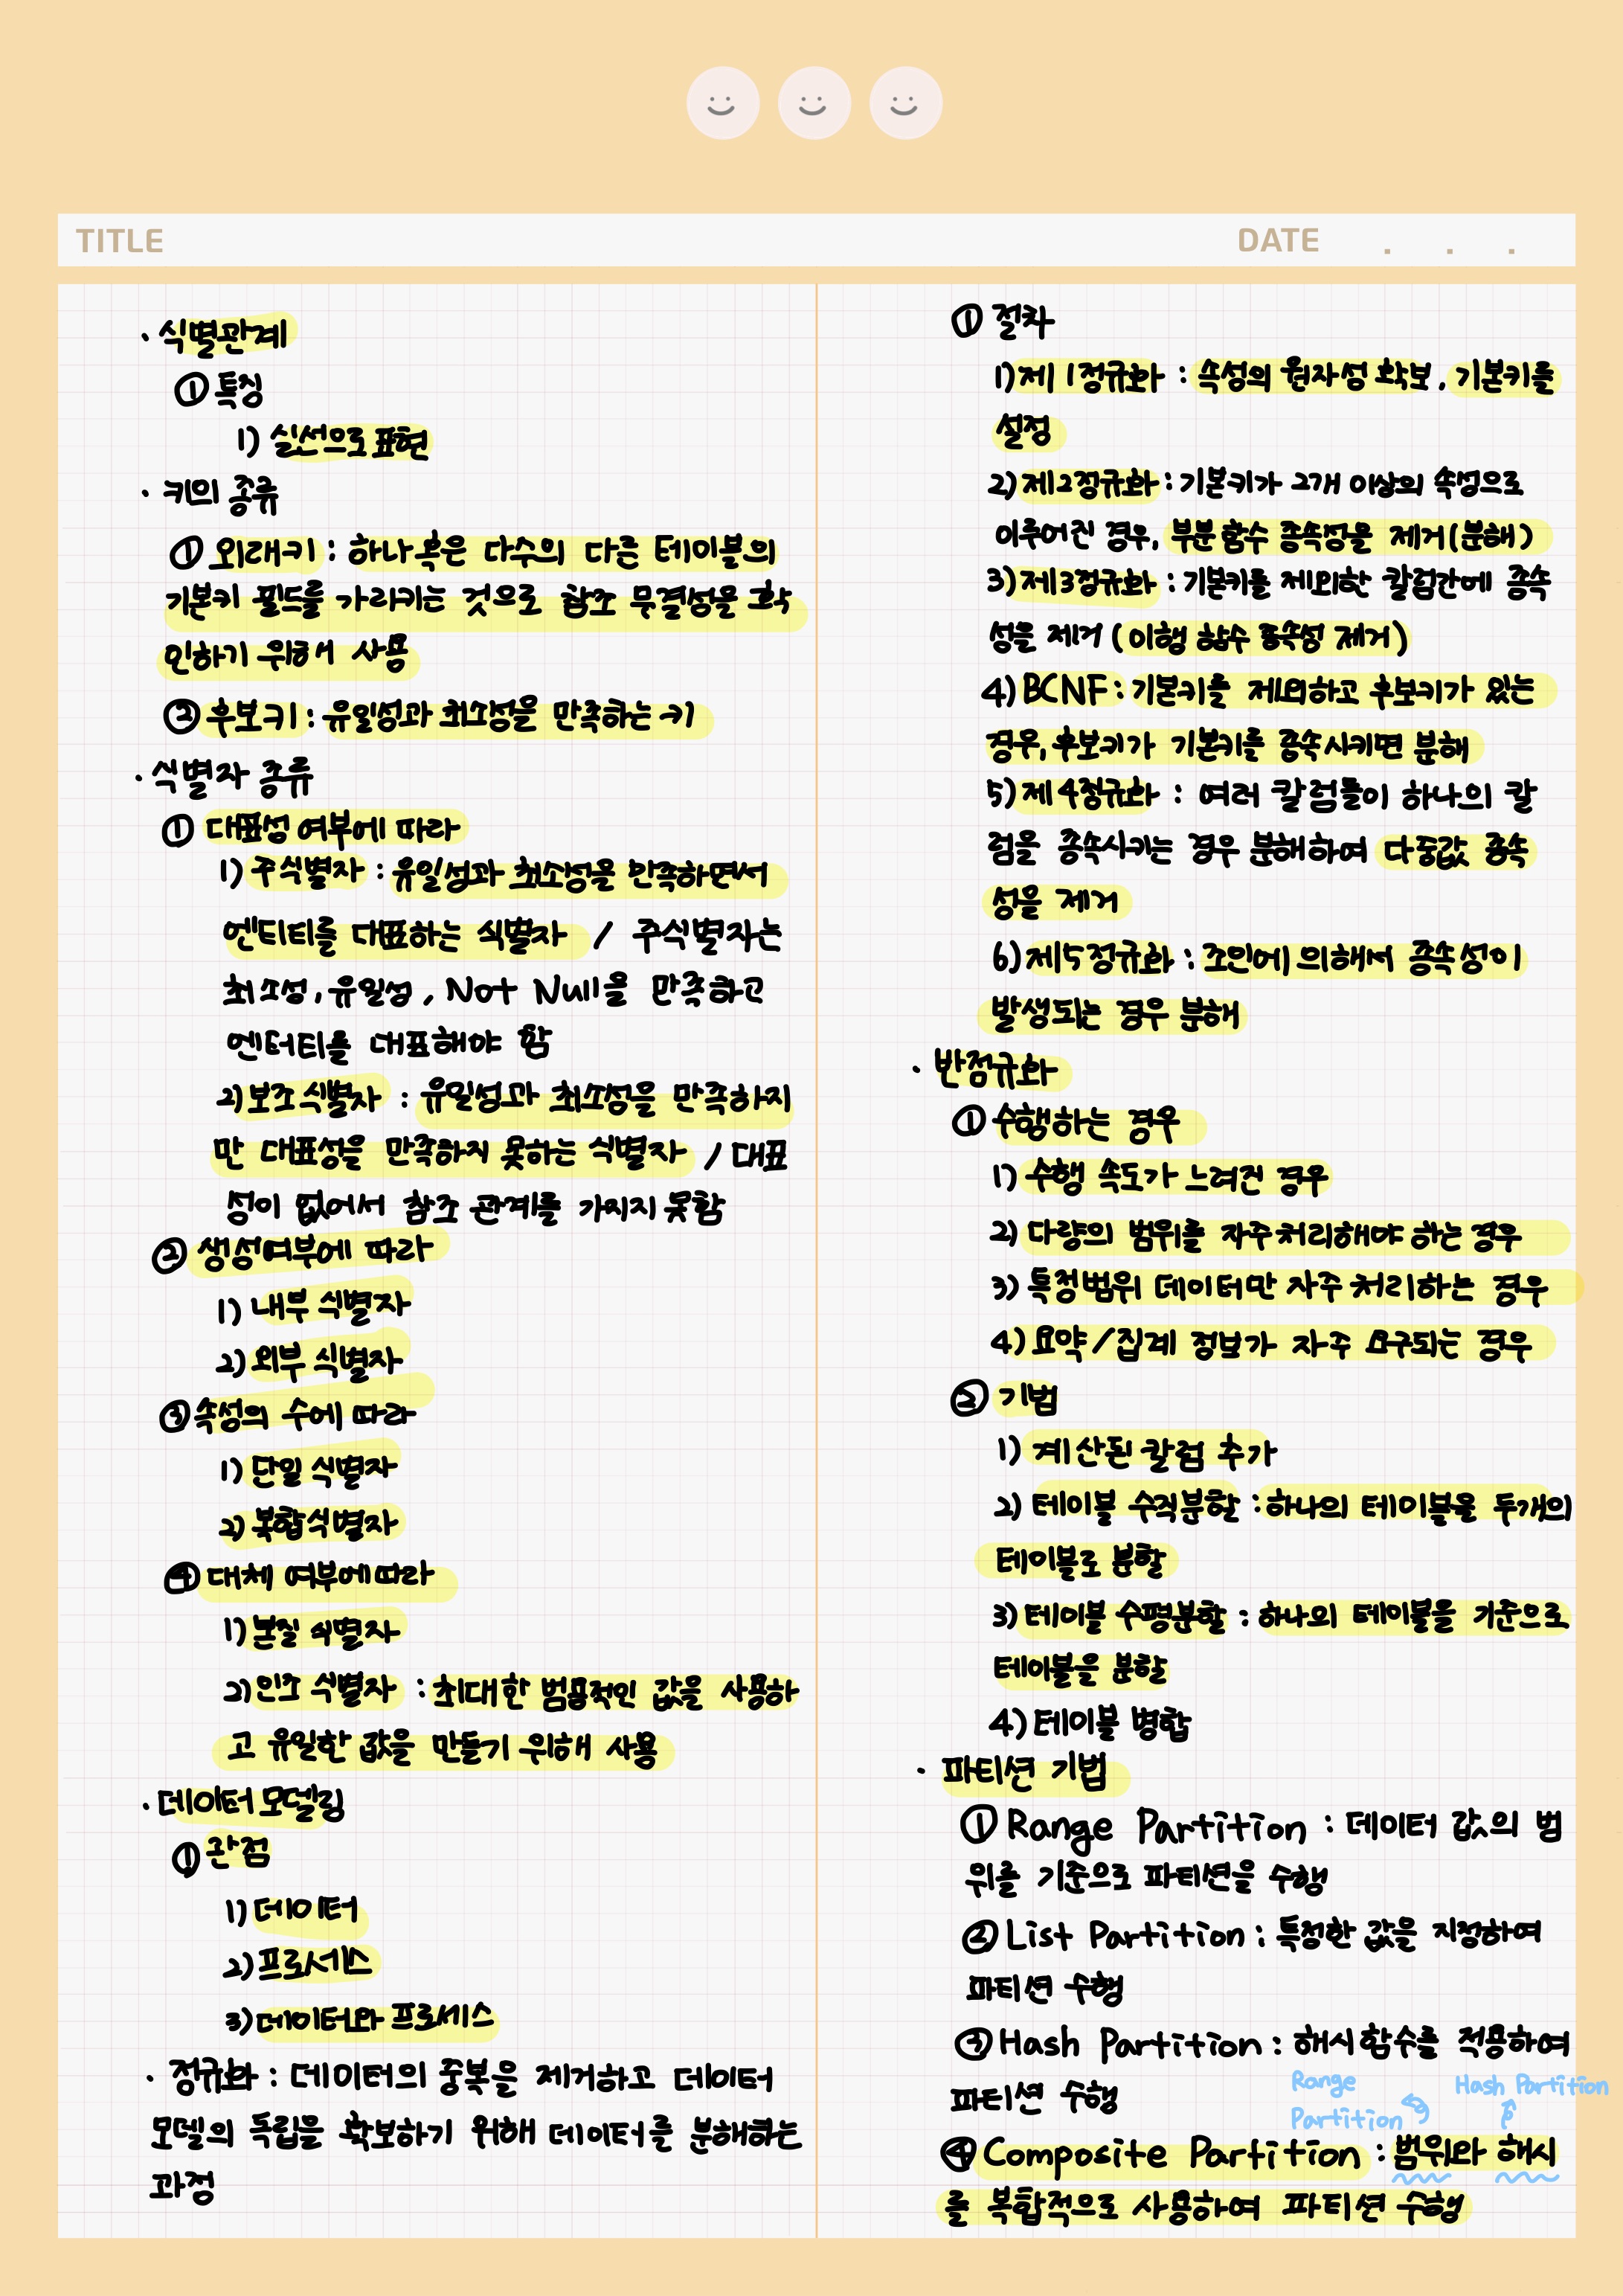 TITLE
DATE . . .
· 식별관계
① 특징
1) 실선으로 표현
· 키의 종류
① 외래키 : 하나 혹은 다수의 다른 테이블의
기본키 필드를 가리키는 것으로 참조 무결성을 확
인하기 위해 사용
② 후보키 : 유일성과 최소성을 만족하는 키
· 식별자 종류
① 대표성 여부에 따라
1) 주식별자 : 유일성과 최소성을 만족하면서
엔티티를 대표하는 식별자 / 주식별자는
최소성, 유일성, Not Null을 만족하고
엔터티를 대표해야 함
2) 보조 식별자 : 유일성과 최소성을 만족하지
만 대표성을 만족하지 못하는 식별자 / 대표
성이 없어서 참조 관계를 가지지 못함
② 생성여부에 따라
1) 내부 식별자
2) 외부 식별자
③ 속성의 수에 따라
1) 단일 식별자
2) 복합식별자
④ 대체 여부에 따라
1) 본질 식별자
2) 인조 식별자 : 최대한 범용적인 값을 사용하
고 유일한 값을 만들기 위해 사용
· 데이터 모델링
① 관점
1) 데이터
2) 프로세스
3) 데이터와 프로세스
· 정규화 : 데이터의 중복을 제거하고 데이터
모델의 독립을 확보하기 위해 데이터를 분해하는
과정
① 절차
1) 제1정규화 : 속성의 원자성 확보, 기본키를
설정
2) 제2정규화 : 기본키가 2개 이상의 속성으로
이루어진 경우, 부분 함수 종속성을 제거(분해)
3) 제3정규화 : 기본키를 제외한 칼럼간에 종속
성을 제거 (이행 함수 종속성 제거)
4) BCNF : 기본키를 제외하고 후보키가 있는
경우, 후보키가 기본키를 종속시키면 분해
5) 제4정규화 : 여러 칼럼들이 하나의 칼
럼을 종속시키는 경우 분해하여 다중값 종속
성을 제거
6) 제5정규화 : 조인에 의해서 종속성이
발생되는 경우 분해
· 반정규화
① 수행하는 경우
1) 수행 속도가 느려진 경우
2) 다량의 범위를 자주 처리해야 하는 경우
3) 특정범위 데이터만 자주 처리하는 경우
4) 요약/집계 정보가 자주 요구되는 경우
② 기법
1) 계산된 칼럼 추가
2) 테이블 수직분할 : 하나의 테이블을 두개의
테이블로 분할
3) 테이블 수평분할 : 하나의 테이블을 기준으로
테이블을 분할
4) 테이블 병합
· 파티션 기법
① Range Partition : 데이터 값의 범
위를 기준으로 파티션을 수행
② List Partition : 특정한 값을 지정하여
파티션 수행
③ Hash Partition : 해시 함수를 적용하여
파티션 수행
Range
Partition
Hash Partition
④ Composite Partition : 범위와 해시
를 복합적으로 사용하여 파티션 수행